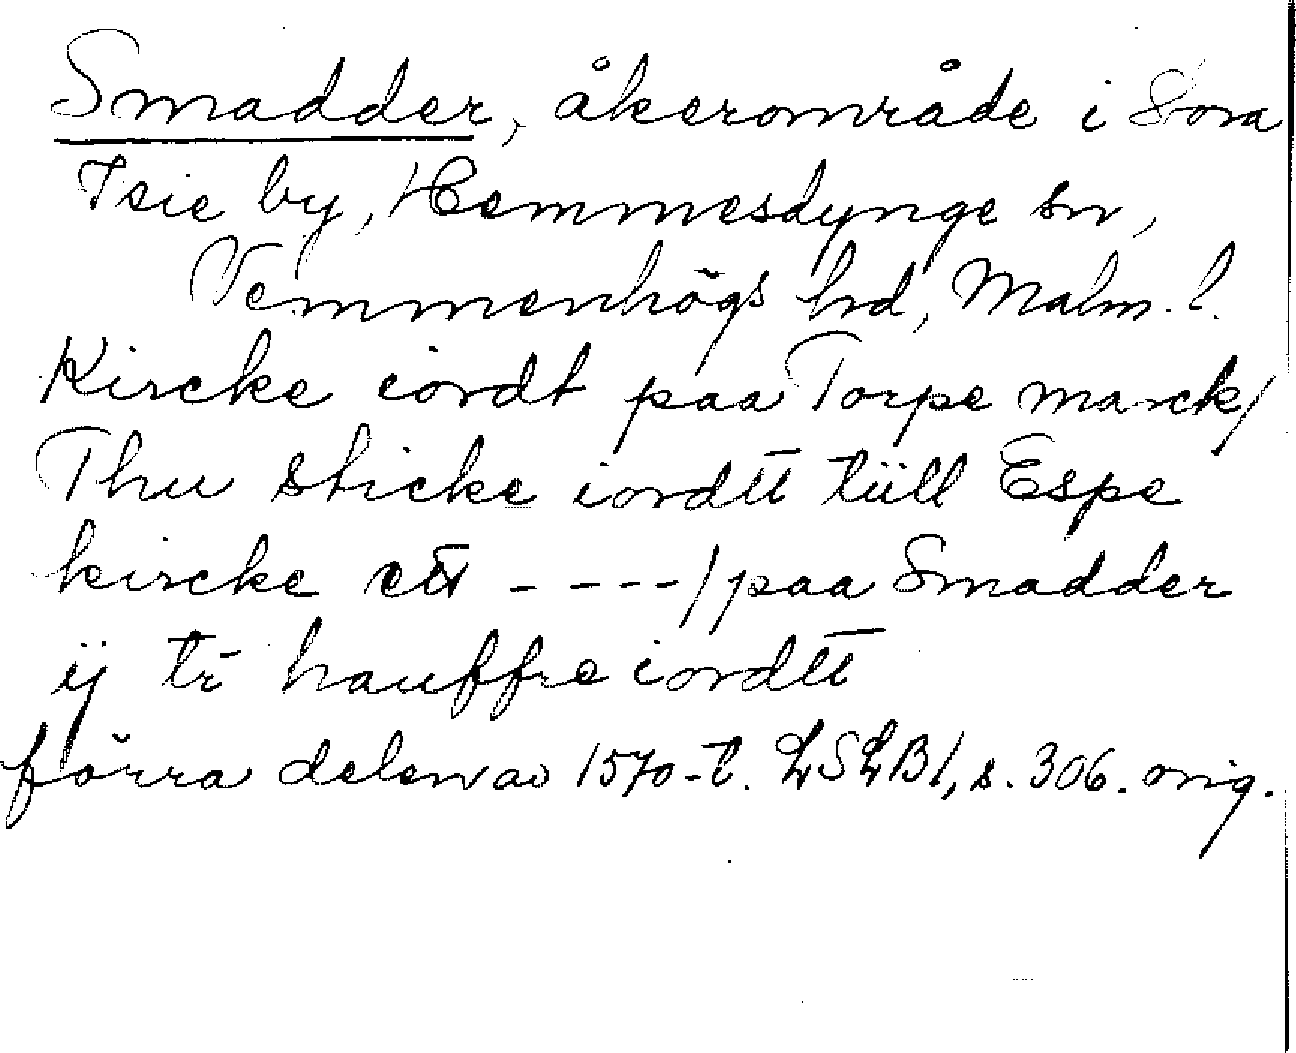 Smadder, åkerområde i Sora
Isie by, Hemmesdynge sn,
Vemmenhögs hd, Malm. l.
Kircke iordt paa Torpe marck/
Thu sticke iordtt tüll Espe
kircke ett ----/ paa Smadder
ij tr hauffre iordtt
förra delen av 1570-t. LSLB1, s. 306. orig.